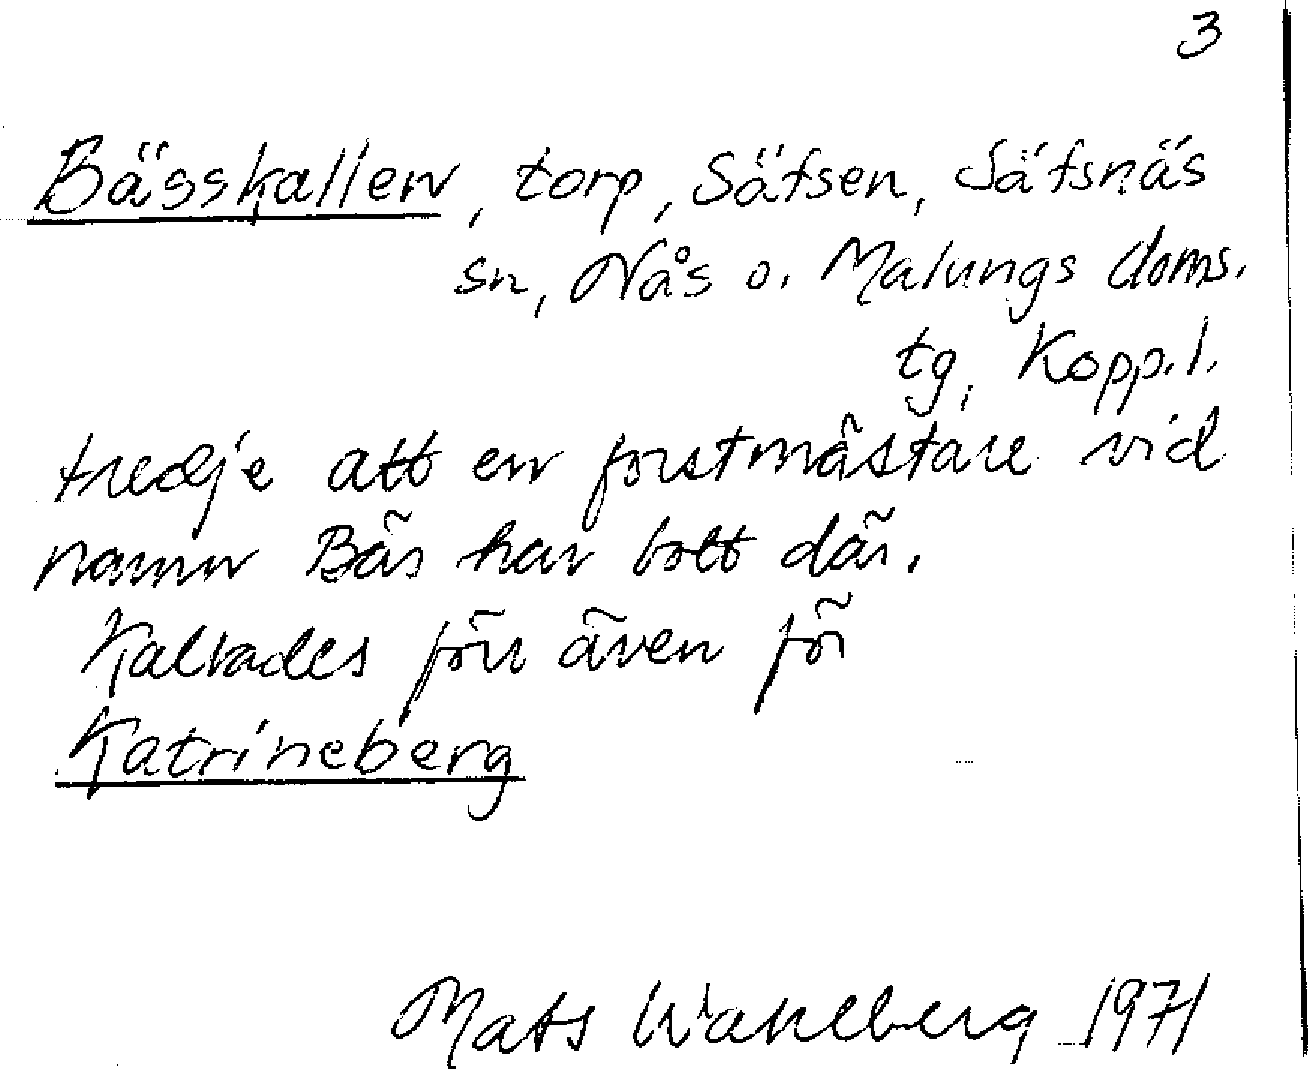 3
Bässkallen, torp, Säfsen, Säfsnäs
sn, Nås o. Malungs doms.
tg, Kopp. l.
tredje att en forstmästare vid
namn Bäs har bott där.
Kallades förr även för
Katrineberg
Mats Wahlberg 1971